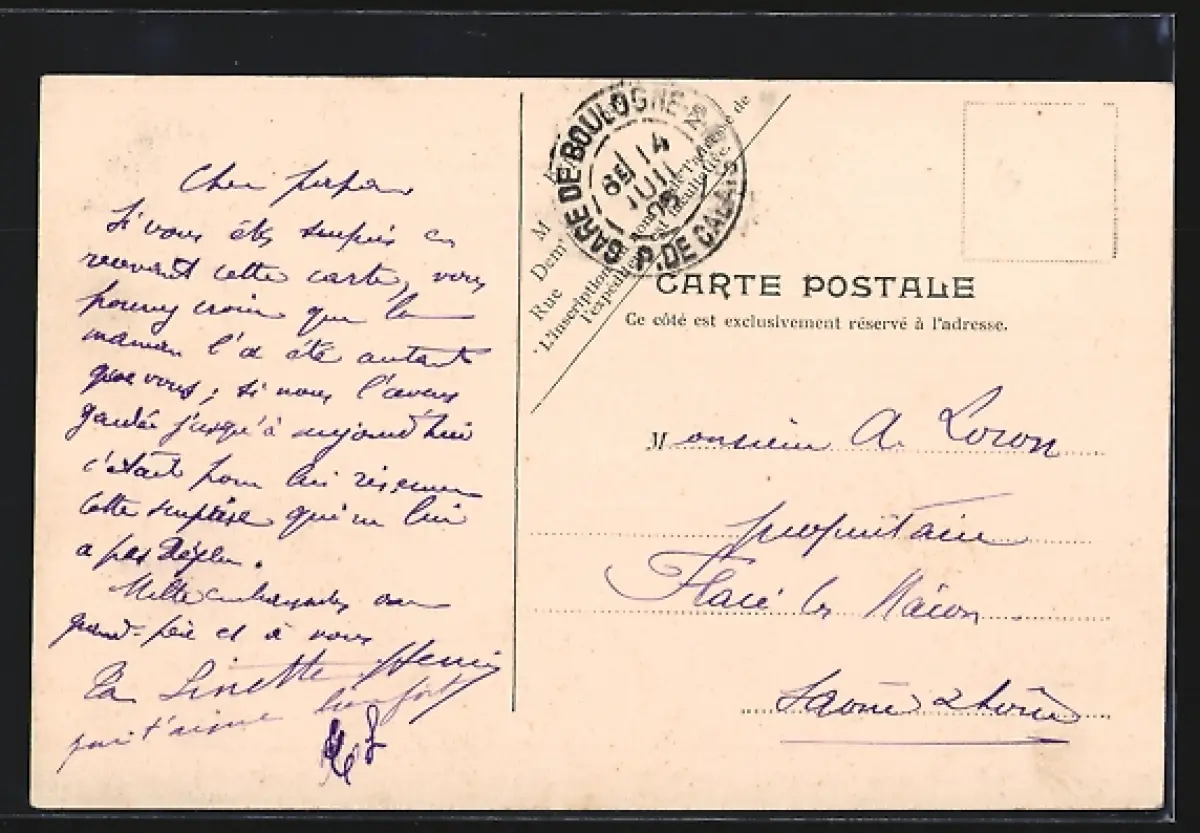 Cher papa
Si vous êtes surpris en
recevant cette carte, vous
pouvez croire que la
maman l'a été autant
que vous; si nous l'avons
gardée jusqu'à aujourd'hui
c'était pour lui réserver
cette surprise qui ne lui
a pas déplu.
Mille embrassades au
grand-père et à vous
Ta Linette Henri
qui t'aime bien fort
GARE DE BOULOGNE-2
6E 14
JUIL
05
P. DE CALAIS
M
Dem
Rue
L'inscription
l'expéditeur
est facultative
CARTE POSTALE
Ce côté est exclusivement réservé à l'adresse.
Monsieur A. Loron
propriétaire
Flacé les Mâcon
Saône & Loire